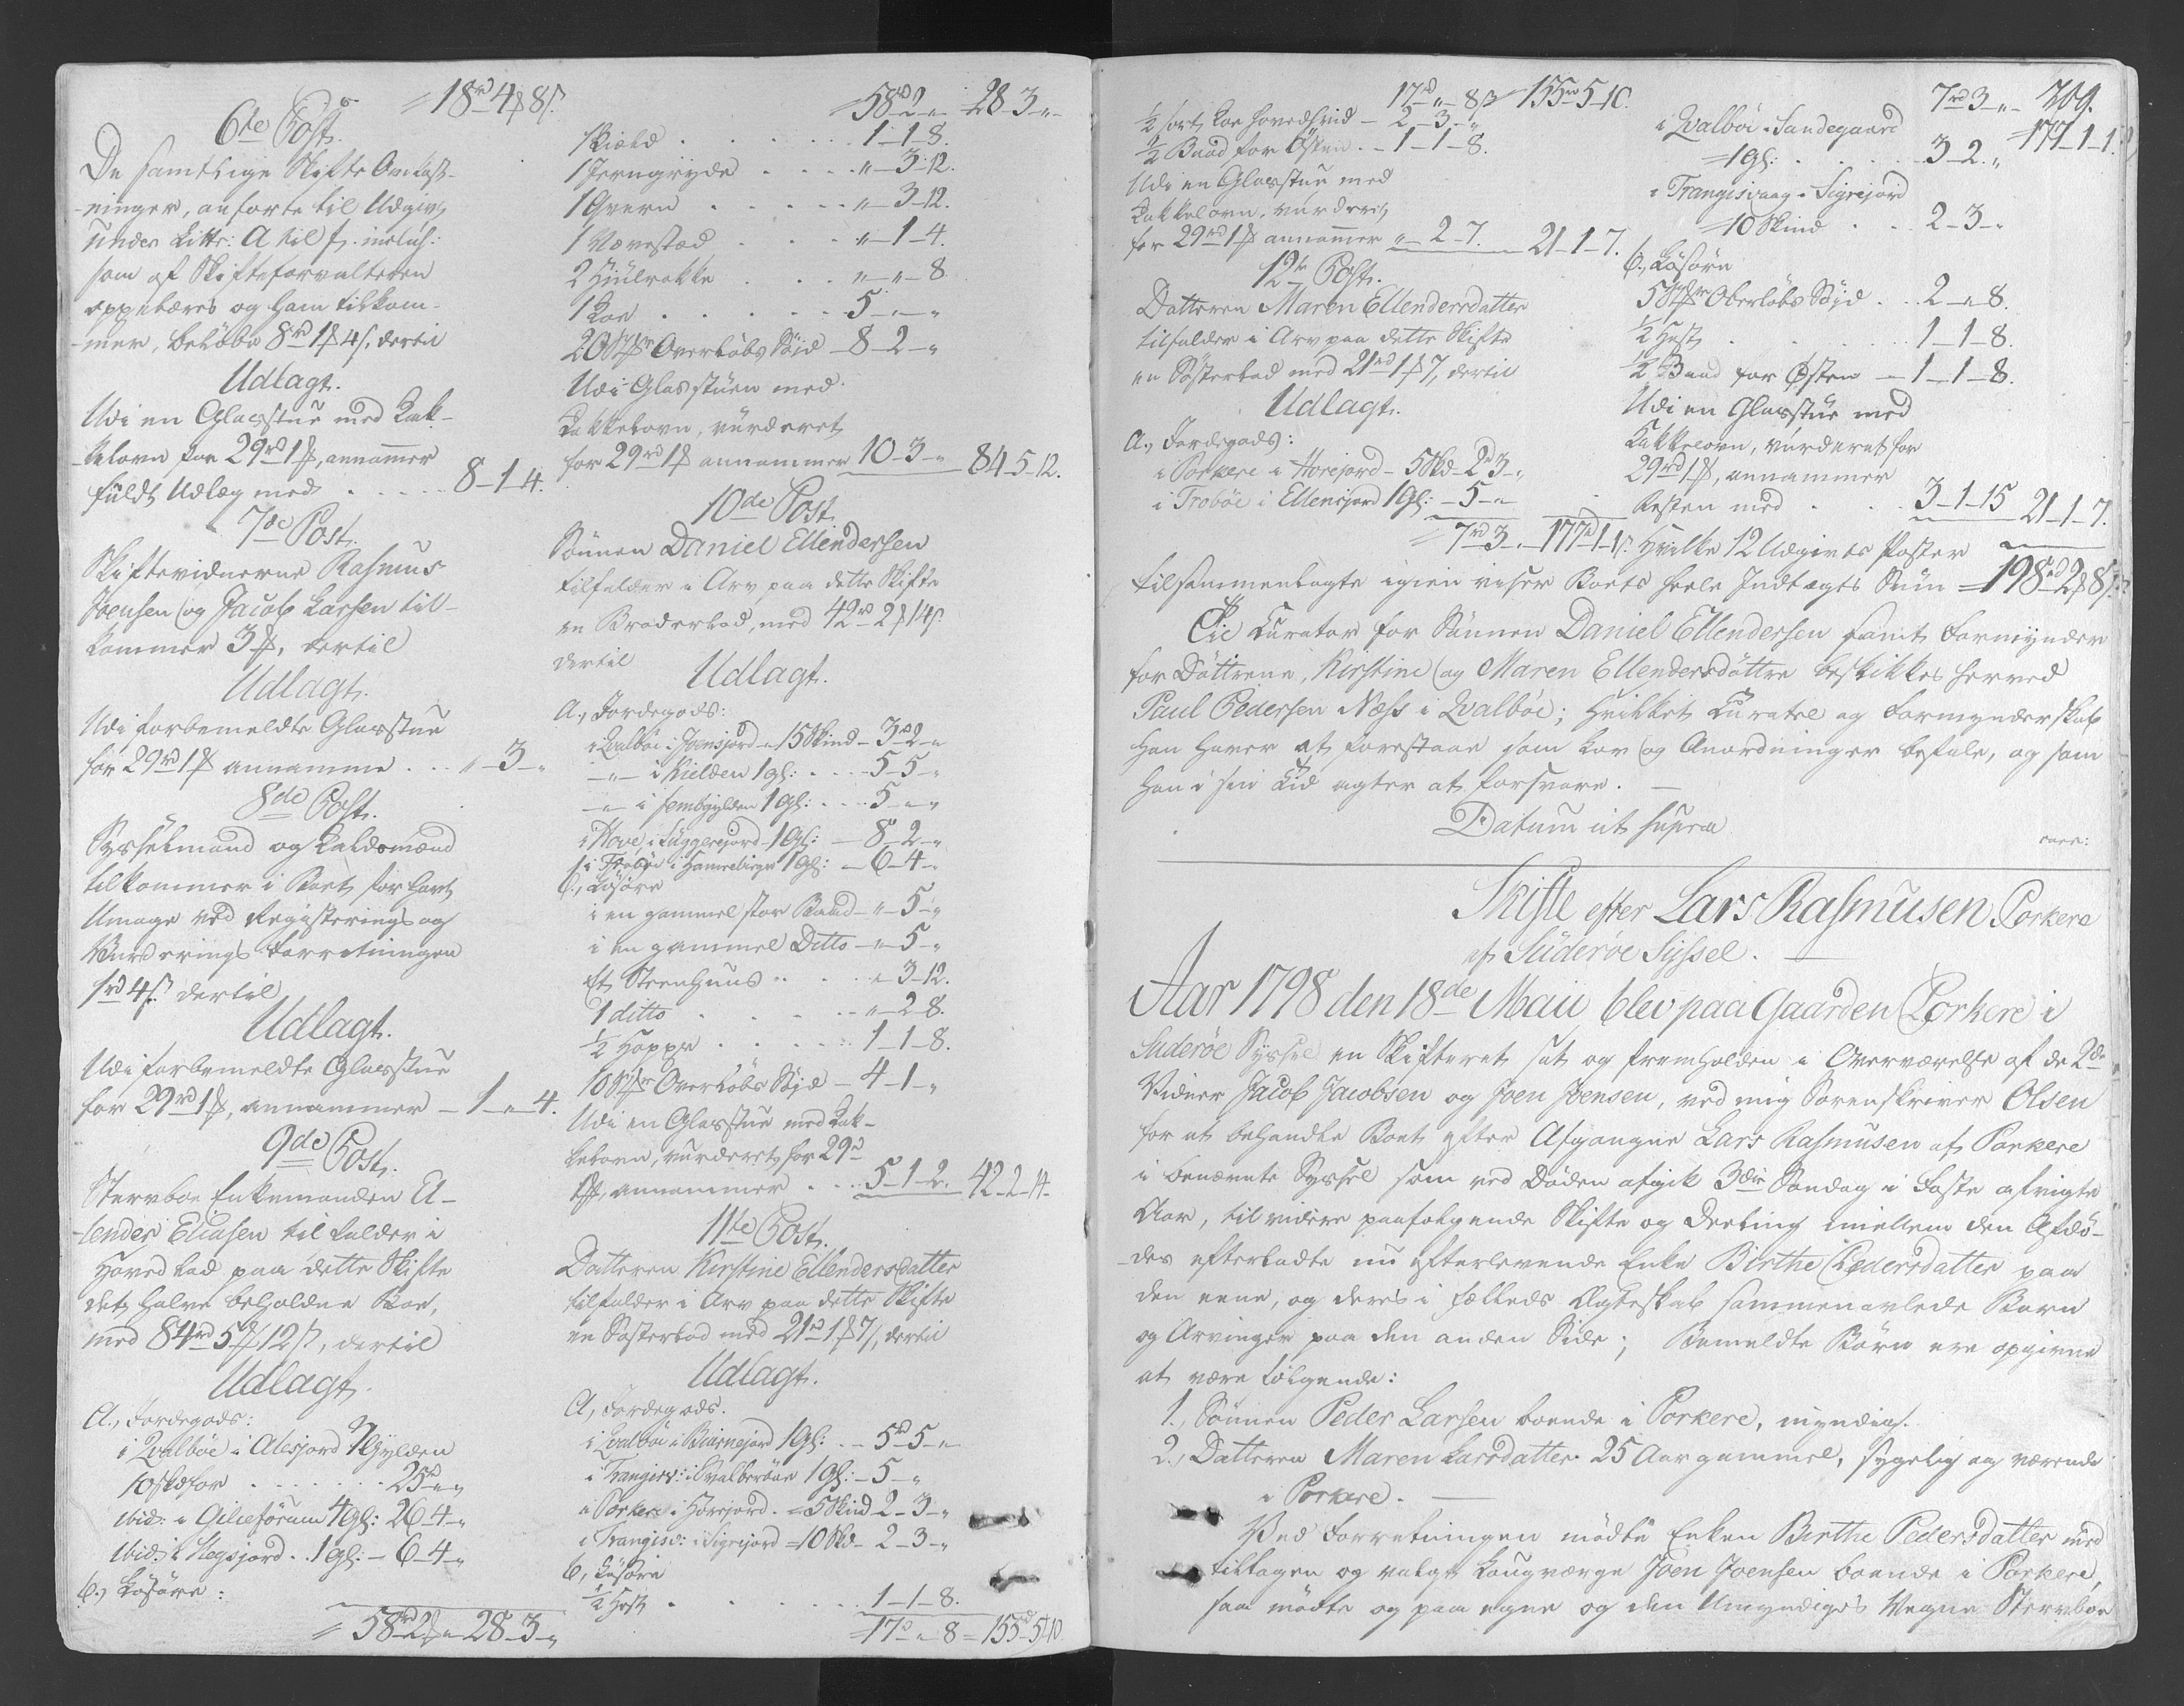 = 18rd 4ß 8s.
6te Post.
De samtlige Skifte Omkost-
ninger, anførte til Udgivt
under Littr: A til f. inclus:
som af Skifteforvalteren
oppebæres og ham tilkom-
mer, beløbe 8rd 1ß 4s. dertil
Udlagt.
Udi en Glasstue med Kak-
kelovn for 29rd 1ß, annammer
fuldt Udlæg med . . . . . 8-1-4.
7de Post.
Skiftevidnerne Rasmus
Joensen og Jacob Larsen til-
kommer 3ß, dertil
Udlagt.
Udi forbemeldte Glasstue
for 29rd 1ß annamme . . . "-3-"
8de Post.
Sysselmand og Lavdsmænd
tilkommer i Boet for havt
Umage ved Registerings og
Vurderings Forretningen
1rd 4s. dertil
Udlagt.
Udi forbemeldte Glasstue
for 29rd 1ß, annammer - 1-"-4.
9de Post.
Stervboe Enkemanden El-
lender Eliasen tilfalder i
Hovedlod paa dette Skifte
det halve beholdne Boe,
med 84rd 5ß 12s, dertil
Udlagt.
A., Jordegods:
i Qvalbøe i Alesjord 4 Gylden
10 Skd for . . . . . . . 25rd-"-"
ibid: i Gilieforum 4 gl: 26-4-"
ibid: i Hegsjord . . 1 gl: - 6-4-"
b., Løsøre:
= 58rd-2ß-" 28-3-"
= 58rd-2-" 28-3-"
Skield . . . . . . . . 1-1-8.
1 Jerngryde . . . . . "-3-12.
1 Qvern . . . . . . "-3-12.
1 Vævestad . . . . "-1-4.
2 Hiulrokke . . . . "-"-8.
1 Koe . . . . . . . 5-"-"
20 Stkr Overløbs Søid - 8-2-"
Udi Glasstuen med
Kakkelovn, vurderet
for 29rd 1ß annammer 10-3-" 84-5-12.
10de Post.
Sønnen Daniel Ellendersen
tilfalder i Arv paa dette Skifte
en Broderlod, med 42rd 2ß 14s.
dertil
Udlagt.
A., Jordegods:
i Qvalbøe i Joensjord - 15 Skind - 3rd-2-"
-"- i Kielden 1 gl: . . . . 5-5-"
-"- i femtgylden 1 gl: . . . 5-"-"
i Hove, i Suggerejord 1 gl: - 8-2-"
i Froboe i Hamrebirge 1 gl: - 6-4-"
b., Løsøre
i en gammel stor Baad - "-5-"
i en gammel Ditto - "-5-"
Et Steenhuus . . . . . "-3-12.
1 ditto . . . . . . "-2-8.
½ Hoppe . . . . . . 1-1-8.
10 Stkr Overløbs Søid - 4-1-"
Udi en Glasstue med Kak-
kelovn, vurderet for 29rd
1ß, annammer . . . 5-1-2. 42-2-14.
11te Post.
Datteren Kirstine Ellendersdatter
tilfalder i Arv paa dette Skifte
en Søsterlod med 21rd 1ß 7s, dertil
Udlagt.
A, Jordegods.
i Qvalbøe i Biarnejord 1 gl: . - 5rd-5-"
i Trangisv: i Qvalberøae 1 gl: - 5-"
i Porkere i Horejord . = 5 Skind 2-3-"
i Trangisv: i Sigrejord = 10 Skd - 2-3-"
b, Løsøre
½ Hest . . . . . . . 1-1-8.
= 17rd-"-8 = 155rd-5-10
17rd-"-8ß = 155rd-5-10.
½ sort Koe hovedskind - 2-3-"
½ Baad for Østen . - 1-1-8.
Udi en Glasstue med
Kakkelovn, vurderet
for 29rd 1ß annammer "-2-7. 21-1-7.
12te Post.
Datteren Maren Ellendersdatter
tilfalder i Arv paa dette Skifte
en Søsterlod med 21rd 1ß 7, dertil
Udlagt.
A., Jordegods:
i Porkere i Horejord - 5 Skd - 2rd 3-"
i Froboe i Ellensjord 1 gl: - 5-"-"
= 7rd-3-" 177rd-1-1s.
7rd-3-" 209.
= 177-1-1.
i Qvalbøe i Sandegaard
= 1 gl: . . . . . . 3-2-"
i Trangisvaag i Sigrejord
= 10 Skind . . . 2-3-"
b., Løsøre
5 Stkr Oberløbs Søid . . . 2-"-8.
½ Hest . . . . . . . 1-1-8.
½ Baad for Østen - 1-1-8.
Udi en Glasstue med
Kakkelovn, vurderet for
29rd 1ß, annammer
Resten med . . . 3-1-15 21-1-7.
Hvilke 12 Udgivts Poster
tilsammenlagte igien viser Boets heele Indtægts Sum = 198rd 2ß 8s.
Til Curator for Sønnen Daniel Ellendersen samt Formynder
for Døttrene, Kirstine og Maren Ellendersdøttre beskikkes herved
Paul Pedersen Næss i Qvalbøe; hvilket Curatel og Formynderskab
han haver at forestaae som Lov og Anordninger befale, og som
han i sin Tid agter at forsvare. —
Datum ut supra
Skifte efter Lars Rasmusen Porkere
af Suderøe Syssel. —
Aar 1798 den 18de Maii blev paa Gaarden Porkere i
Suderøe Syssel en Skifteret sat og fremholden i Overværelse af de 2de
Vidner Jacob Jacobsen og Joen Joensen, ved mig Sorenskriver Olsen
for at behandle Boet efter Afgangne Lars Rasmusen af Porkere
i benævnte Syssel som ved Døden afgik 3die Søndag i Faste afvigte
Aar, til videre paafølgende Skifte og Deeling imellem den Afdø-
des efterladte nu efterlevende Enke Birthe Pedersdatter paa
den eene, og deres i fælleds Ægteskab sammenavlede Børn
og Arvinger paa den anden Side; Bemeldte Børn ere opgivne
at være følgende:
1., Sønnen Peder Larsen boende i Porkere, myndig.
2., Datteren Maren Larsdatter 25 Aar gammel, sygelig og værende
i Porkere. —
Ved Forretningen mødte Enken Birthe Pedersdatter med
tiltagen og valgt Laugværge Joen Joensen boende i Porkere,
saa mødte og paa egne og den Umyndiges Vegne Stervboe